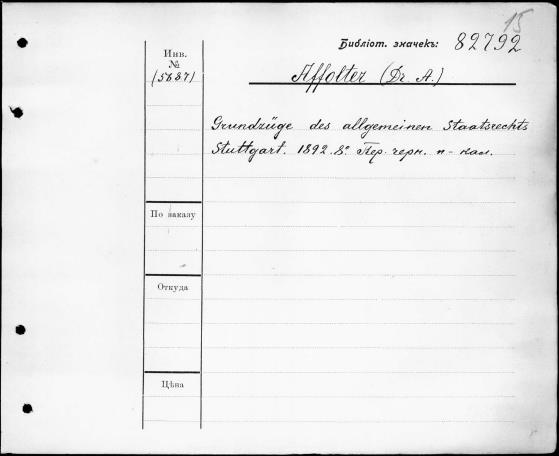 15
Библіот. значекъ: 82792
Инв.
№
(5687)
Affolter (Dr. A.)
Grundzüge des allgemeinen Staatsrechts
Stuttgart. 1892. 8°. Пер. черн. п-кал.
По заказу
Откуда
Цѣна